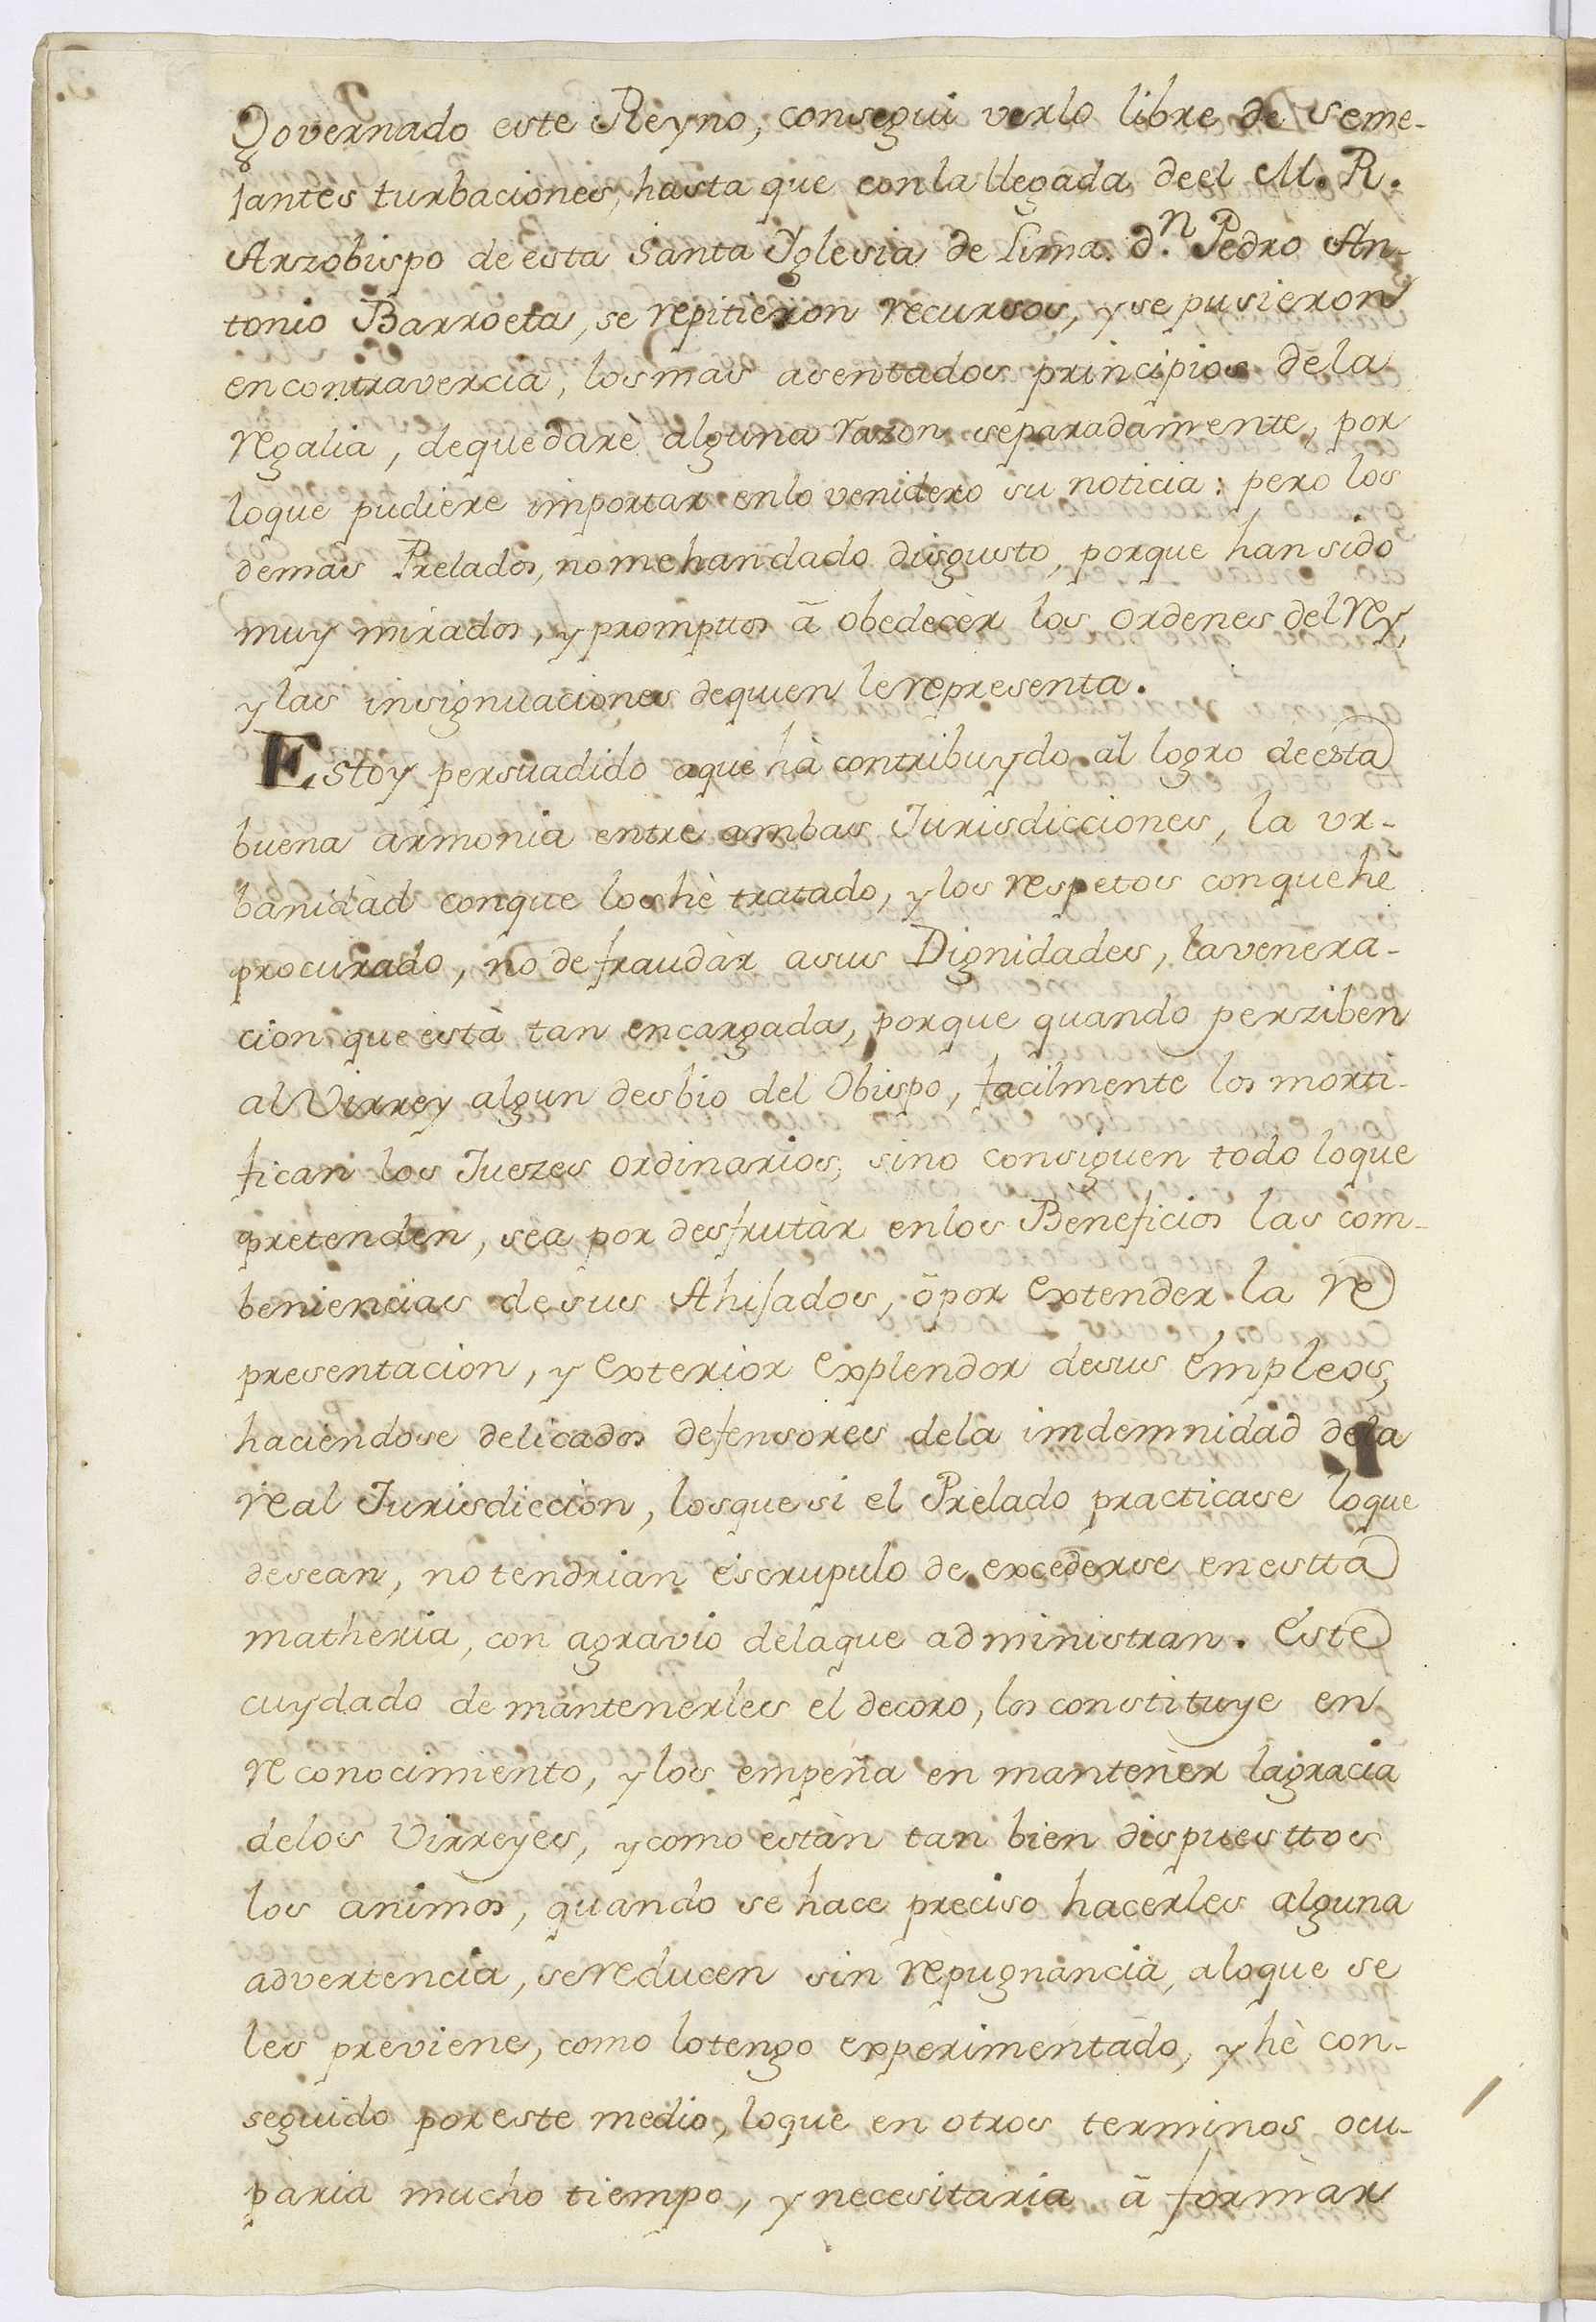 Governado este Reyno, consegui verlo libre de seme-
jantes turbaciones, hasta que con la llegada de el M. R.
Arzobispo de esta Santa Yglesia de Lima D.n Pedro An-
tonio Barroeta, se repitieron recursos, y se pusieron
en contravercia, los mas asentados principios de la
regalia, de que darè alguna razon separadamente, por
lo que pudiere importar en lo venidero su noticia: pero los
demàs Prelados, no me han dado disgusto, porque han sido
muy mirados, y promptos ã obedecèr los ordenes del Rey,
y las insignuaciones de quien le representa.
Estoy persuadido a que hà contribuydo al logro de esta
buena armonia entre ambas Jurisdicciones, la ur-
banidàd con que los hè tratado, y los respetos con que hè
procurado, no defraudàr a sus Dignidades, la venera-
cion que està tan encargada, porque quando perziben
al Virrey algun desbio del Obispo, facilmente los morti-
fican los Juezes ordinarios, sino consiguen todo lo que
pretenden, sea por desfrutàr en los Beneficios las com-
beniencias de sus Ahijados, õ por extender la re
presentacion, y exterior explendor de sus empleos,
haciendose delicados defensores de la imdemnidad de la
real Jurisdiccion, los que si el Prelado practicase lo que
desean, no tendrian escrupulo de excederse en estta
matheria, con agravio de la que administran. Este
cuydado de mantenerles el decoro, los constituye en
reconocimiento, y los empeña en mantenèr la gracia
de los Virreyes, y como estàn tan bien dispuesttos
los animos, quando se hace preciso hacerles alguna
advertencia, se reducen sin repugnancia, a lo que se
les previene, como lo tengo experimentado, y hè con-
seguido por este medio, lo que en otros terminos ocu-
paria mucho tiempo, y necesitaria ã formàr